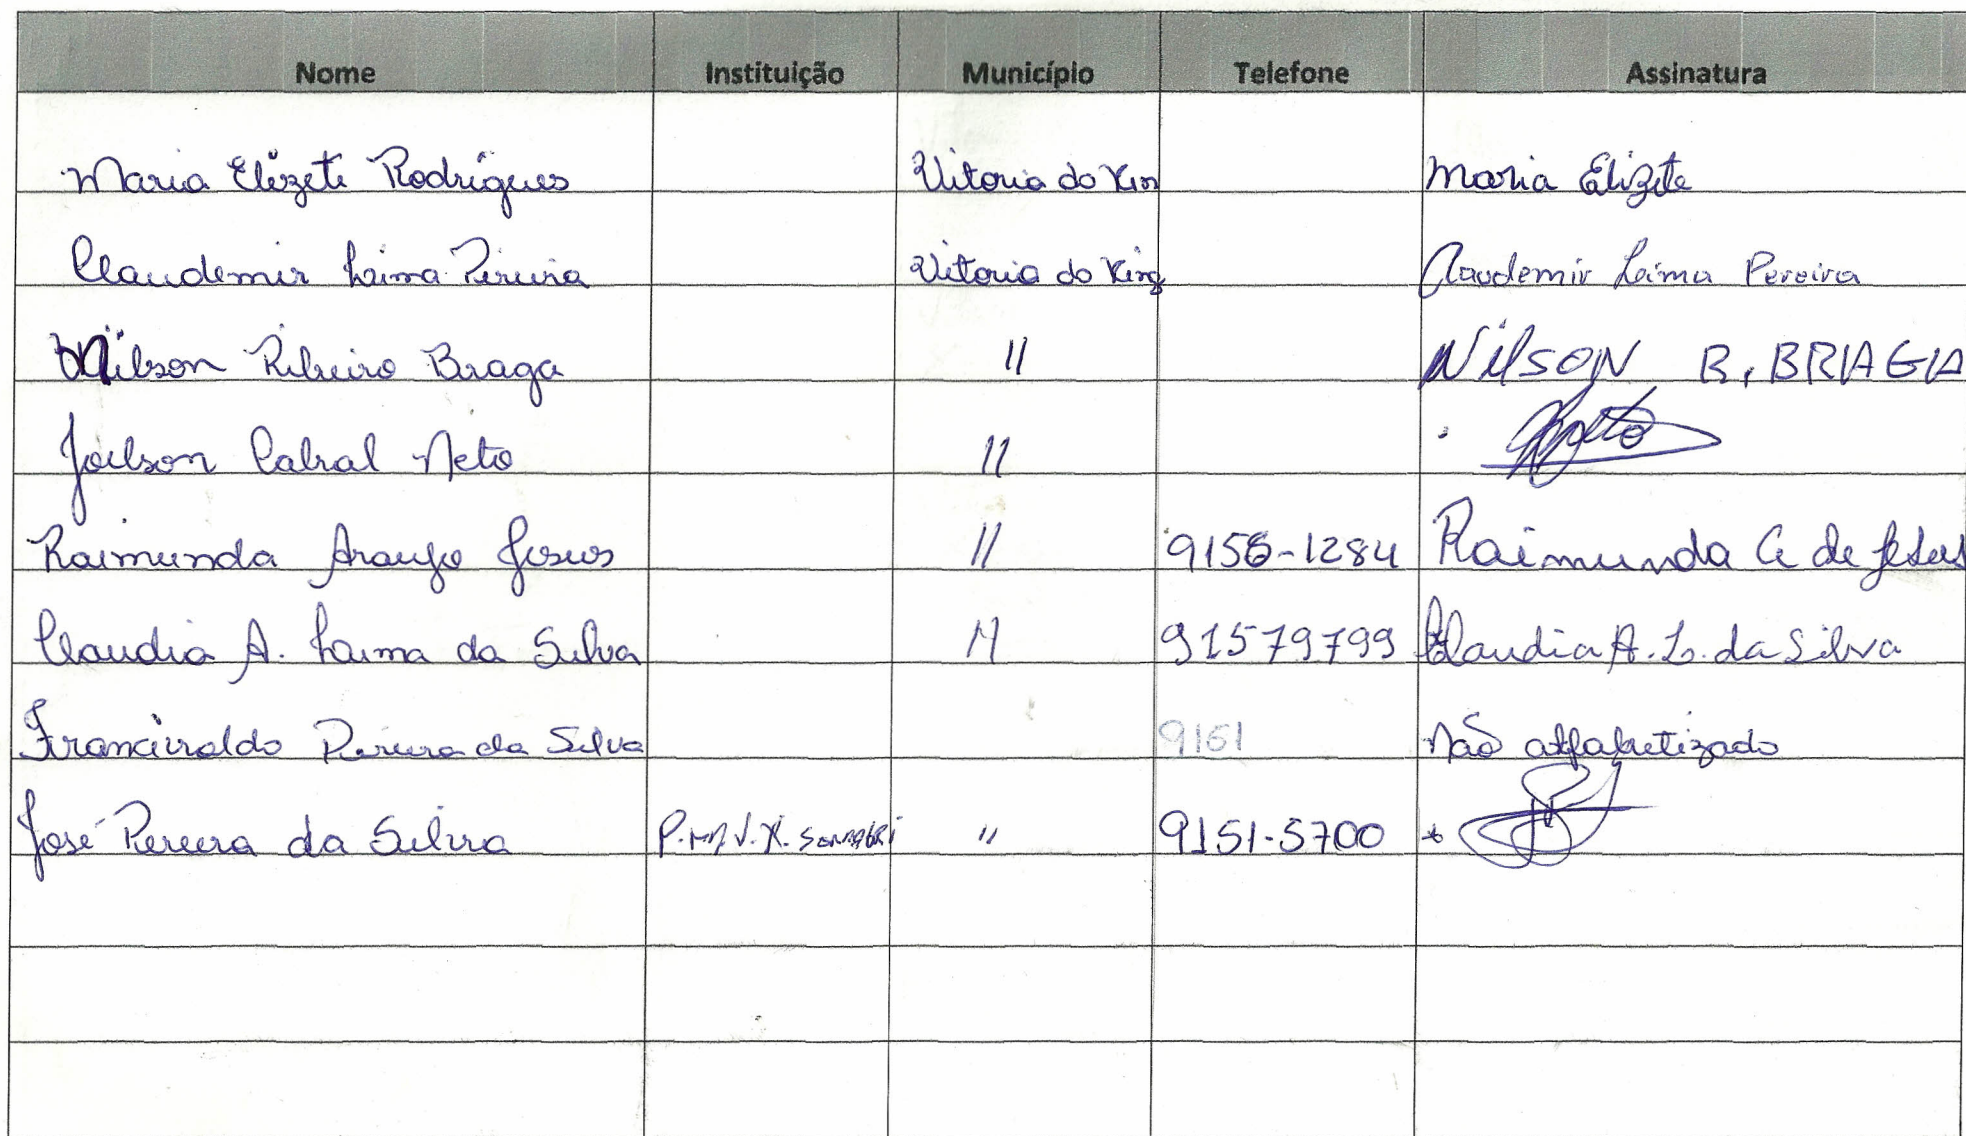 Nome Instituição Município Telefone Assinatura
Maria Elizete Rodrigues Vitoria do Xin Maria Elizete
Claudemir Lima Pereira Vitoria do Xing Claudemir Leima Pereira
Nilson Ribeiro Braga 11 Nilson R. BRAGA
Joelson Cabral Neto 11
Raimunda Araujo Jesus 11 9156-1284 Raimunda A de Jesus
Claudia A. Lima da Silva 11 91579799 Claudia A. L. da Silva
Pereira da Silva 9151 Não alfabetizado
José Pereira da Silva P.M.V.X. " 9151-5700